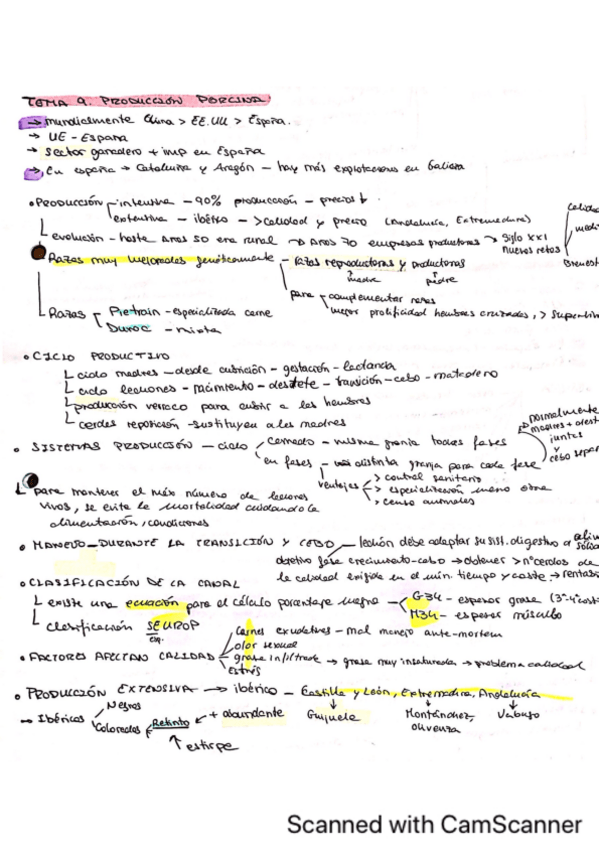 TEMA 9. PRODUCCIÓN PORCINA
→ mundialmente China > EE.UU > España.
→ UE - España
→ sector ganadero + imp en España
→ En españa → Cataluña y Aragón - hay más explotaciones en Galicia
• PRODUCCIÓN intensiva - 90% producción - precios ↓
extensiva - ibérico - > calidad y precio (Andalucía, Extremadura)
evolución - hasta años 50 era rural → Años 70 empresas productoras → Siglo XXI nuevos retos
Razas muy mejoradas genéticamente - razas reproductoras y productoras
madre padre
para complementar razas
mejor prolificidad hembras cruzadas, >
Razas Pietrain - especializada carne
Duroc - mixta
• CICLO PRODUCTIVO
ciclo madres - desde cubrición - gestación - lactancia
ciclo lechones - nacimiento - destete - transición - cebo - matadero
producción verraco para cubrir a las hembras
cerdas reposición - sustituyen a las madres
• SISTEMAS PRODUCCIÓN - ciclo cerrado - misma granja todas fases
en fases - una distinta granja para cada fase
normalmente
madres + dest
juntes
cebo separ
ventajas > control sanitario
> especialización mano obra
> censo animales
para mantener el máx número de lechones
vivos, se evita la mortalidad cuidando la
alimentación, condiciones
• MANEJO - DURANTE LA TRANSICIÓN Y CEBO - lechón debe adaptar su sist. digestivo a alim
objetivo fase crecimiento-cebo → obtener > nº cerdos de
la calidad exigida en el mín. tiempo y coste →
• CLASIFICACIÓN DE LA CANAL
existe una ecuación para el cálculo porcentaje magro - G34 - espesor grasa (3ª-4ª cost
M34 - espesor músculo
Clasificación SEUROP
• FACTORES AFECTAN CALIDAD Carnes exudativas - mal manejo ante-mortem
olor sexual
grasa infiltrada → grasa muy insaturada → problema calidad
Estrés
• PRODUCCIÓN EXTENSIVA → ibérico - Castilla y León, Extremadura, Andalucía
Guijuelo Montánchez, Jabugo
olivenza
→ Ibéricos Negros
Colorados Retinto + abundante
estirpe
Scanned with CamScanner